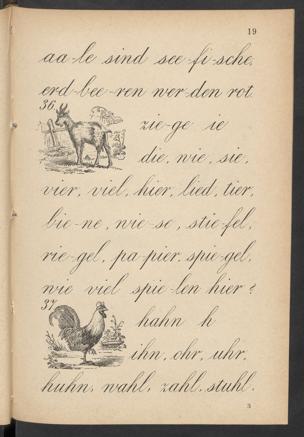 19
aa-le sind see-fi-sche.
erd-bee-ren wer-den rot
36.
zie-ge ie
die, wie, sie,
vier, viel, hier, lied, tier,
bie-ne, wie-se, stie-fel,
rie-gel, pa-pier, spie-gel,
wie viel spie-len hier?
37.
hahn h
ihn, ohr, uhr,
huhn, wahl, zahl, stuhl.